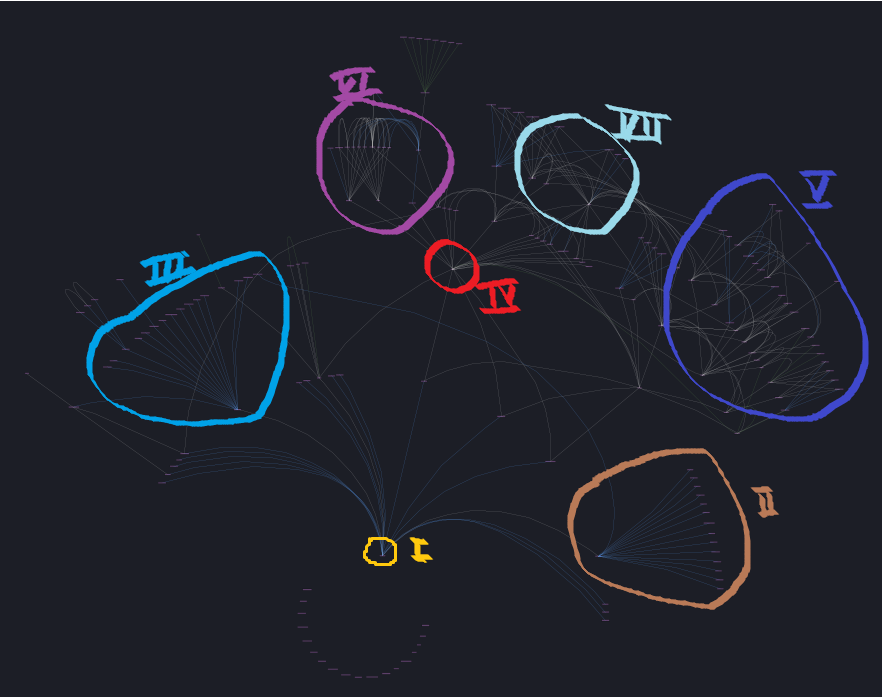 VI
VII
V
III
IV
II
I